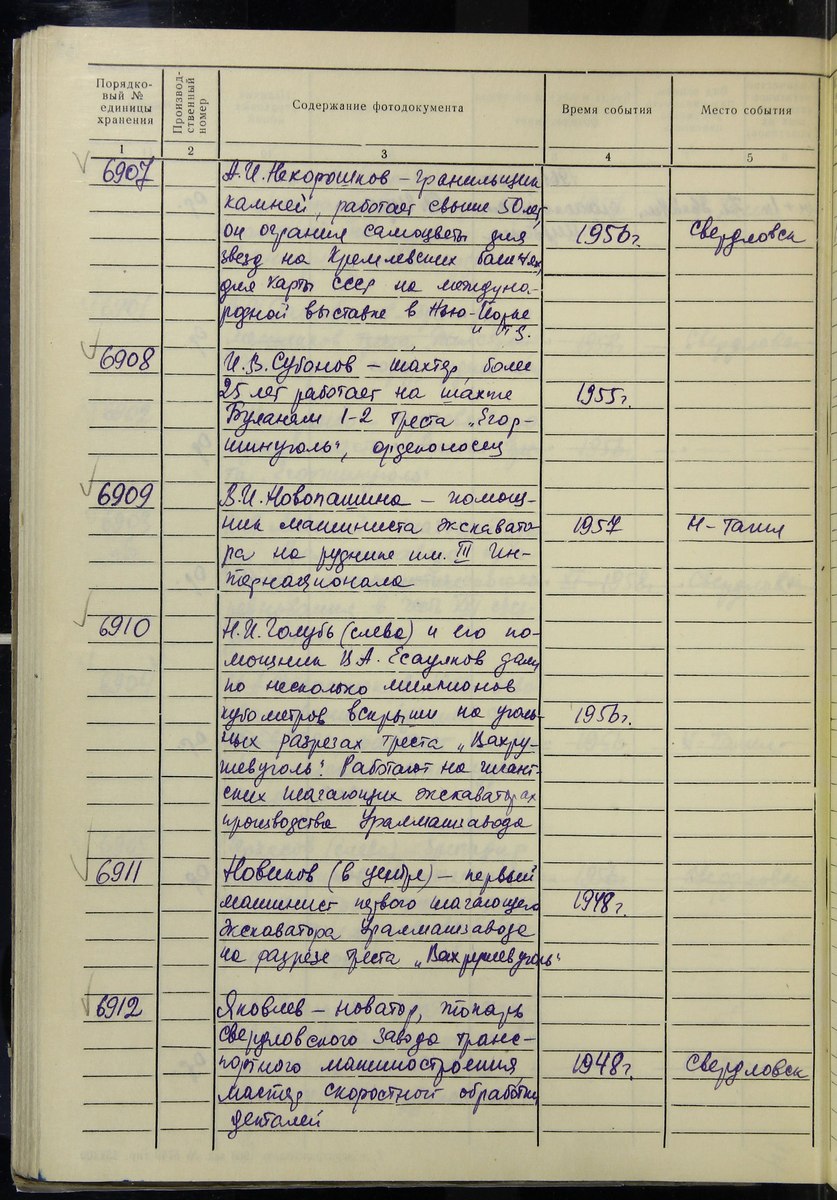 Порядко-
вый №
единицы
хранения
Производ-
ственный
номер
Содержание фотодокумента
Время события
Место события
1 2 3 4 5
6907 А.И. Некорошков – гранильщик
камней, работает свыше 50 лет,
он огранил самоцветы для 1956г. Свердловск
звезд на Кремлевских башнях,
для карты СССР на междуна-
родной выставке в Нью-Йорке
и т.д.
6908 И.В. Субонов – шахтер, более
25 лет работает на шахте 1955г.
Буланаш 1-2 треста „Егор-
шинуголь“, орденоносец
6909 В.И. Новопашина – помощ-
ник машиниста экскавато- 1957 Н-Тагил
ра на руднике им. III Ин-
тернационала
6910 Н.И. Голубь (слева) и его по-
мощник Есаулков дали
по несколько миллионов
кубометров вскрыши на уголь- 1956г.
ных разрезах треста „Вахру-
шевуголь“. Работают на гигант-
ских шагающих экскаваторах
производства Уралмашзавода
6911 Новиков (в центре) – первый
машинист первого шагающего 1948г.
экскаватора Уралмашзавода
на разрезе треста „Вахрушевуголь“
6912 Яковлев – новатор, токарь
Свердловского завода транс-
портного машиностроения, 1948г. Свердловск
мастер скоростной обработки
деталей